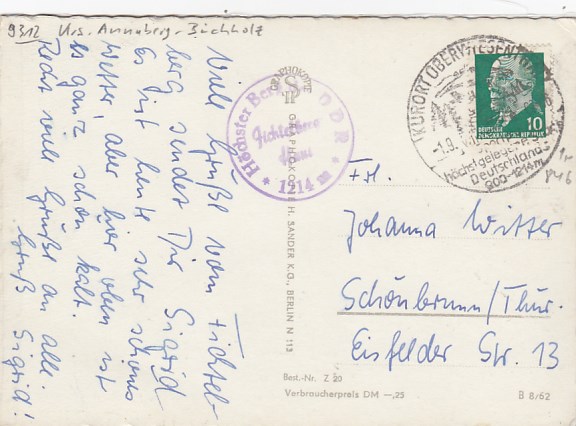 9312 Krs. Annaberg-Buchholz
Viele Grüße vom Fichtel-
berg sendet Dir Sigrid
Es ist heute sehr schönes
Wetter, aber hier oben ist
es ganz schön kalt.
Recht viele Grüße an alle.
Gruß Sigrid!
GRAPHOKOPIE
GRAPHOKOPIE H. SANDER K.G., BERLIN N 113
Höchster Berg DDR
Fichtelberg
Haus
1214 m
KURORT OBERWIESENTHAL
-1.9.
höchstgelegene
Deutschlands
900-1214m
10
DEUTSCHE
DEMOKRATISCHE REPUBLIK
846
Frl.
Johanna Witter
Schönbrunn/Thür.
Eisfelder Str. 13
Best.-Nr. Z 20
Verbraucherpreis DM -,25
B 8/62